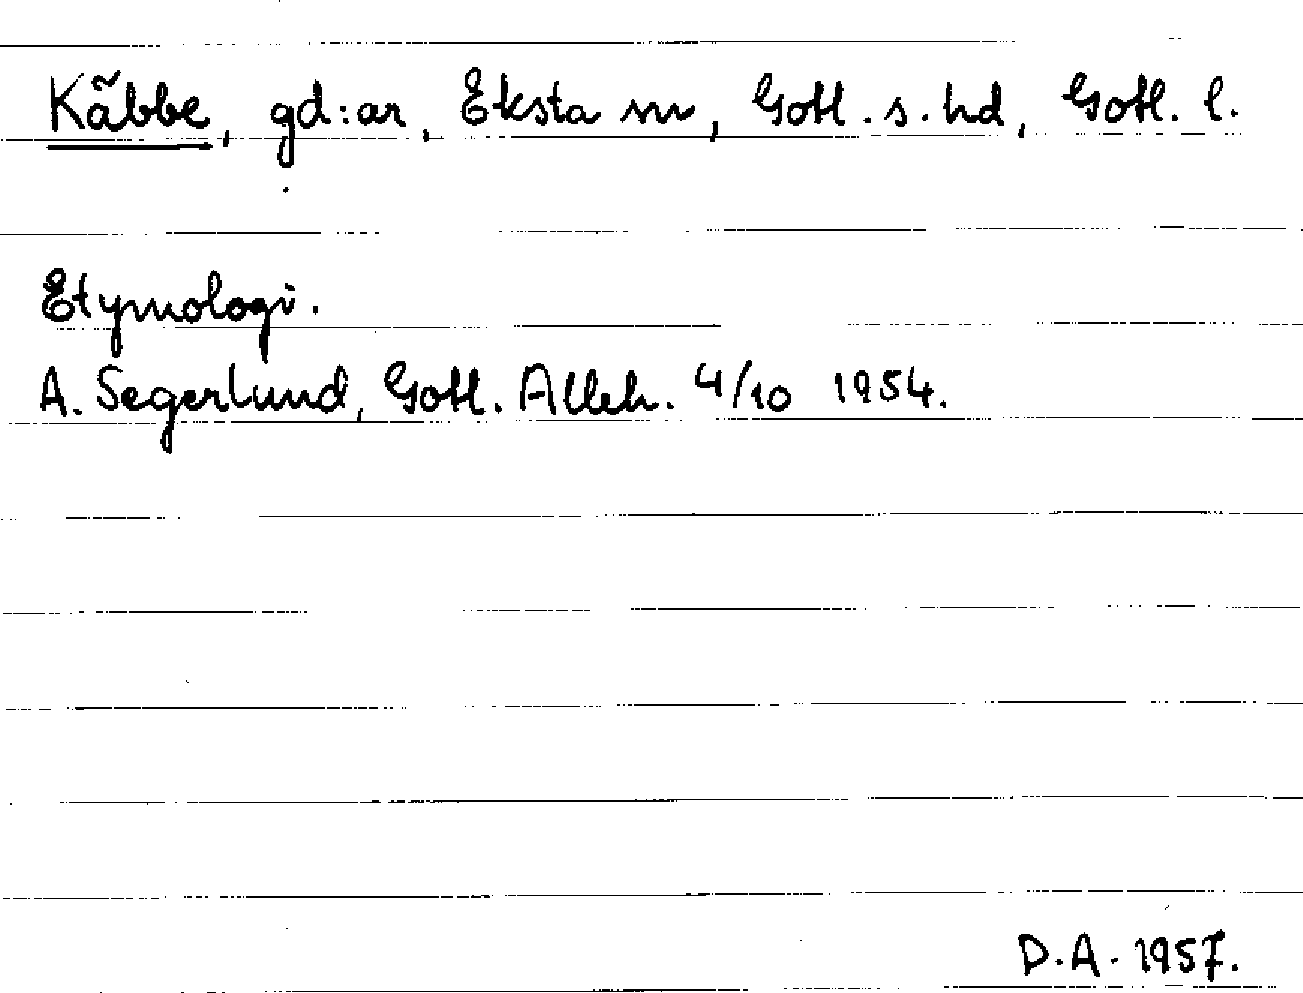 Käbbe, gd:ar, Eksta sn, Gotl. s. hd, Gotl. l.
Etymologi.
A. Segerlund, Gotl. Alleh. 4/10 1954.
D.A. 1957.